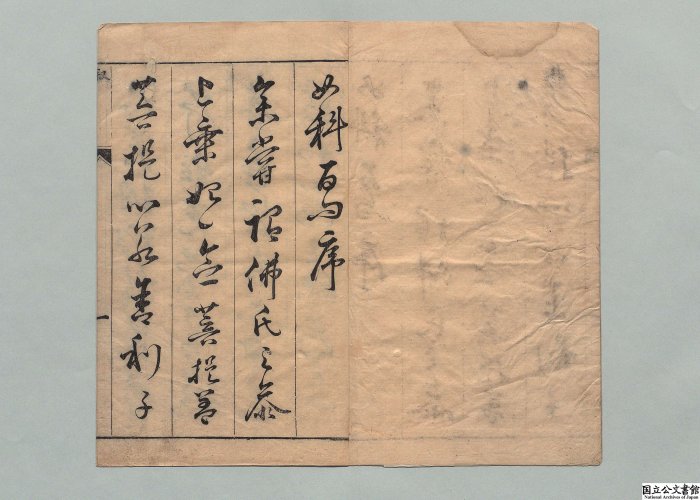 女科百問序
嘗謂佛氏之
上乘念菩提
菩提善利子
一
国立公文書館
National Archives of Japan